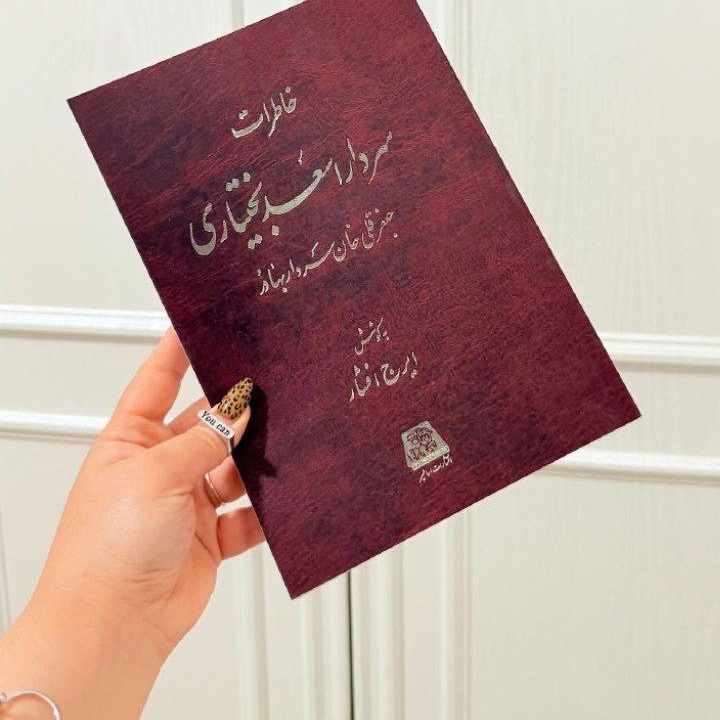 خاطرات
سردار اسعد بختیاری
جعفر قلی خان سردار بهادر
به کوشش
ایرج افشار
انتشارات اساطیر
You can